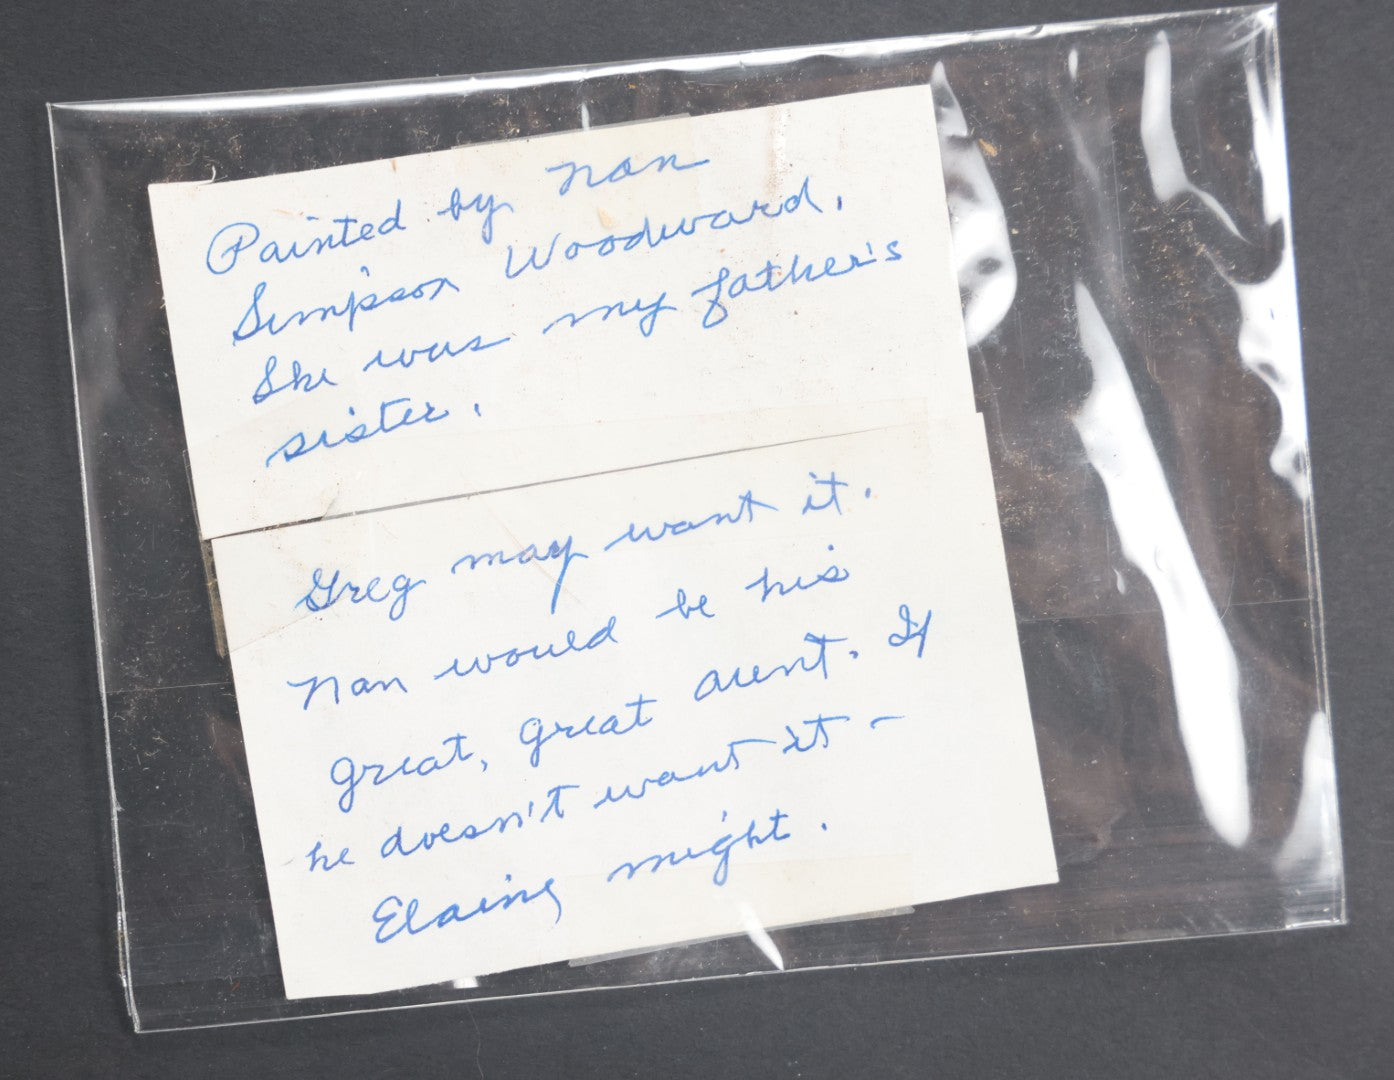 Painted by Nan
Simpson Woodward.
She was my father's
sister.
Greg may want it.
Nan would be his
great, great aunt. If
he doesn't want it –
Elaine might.